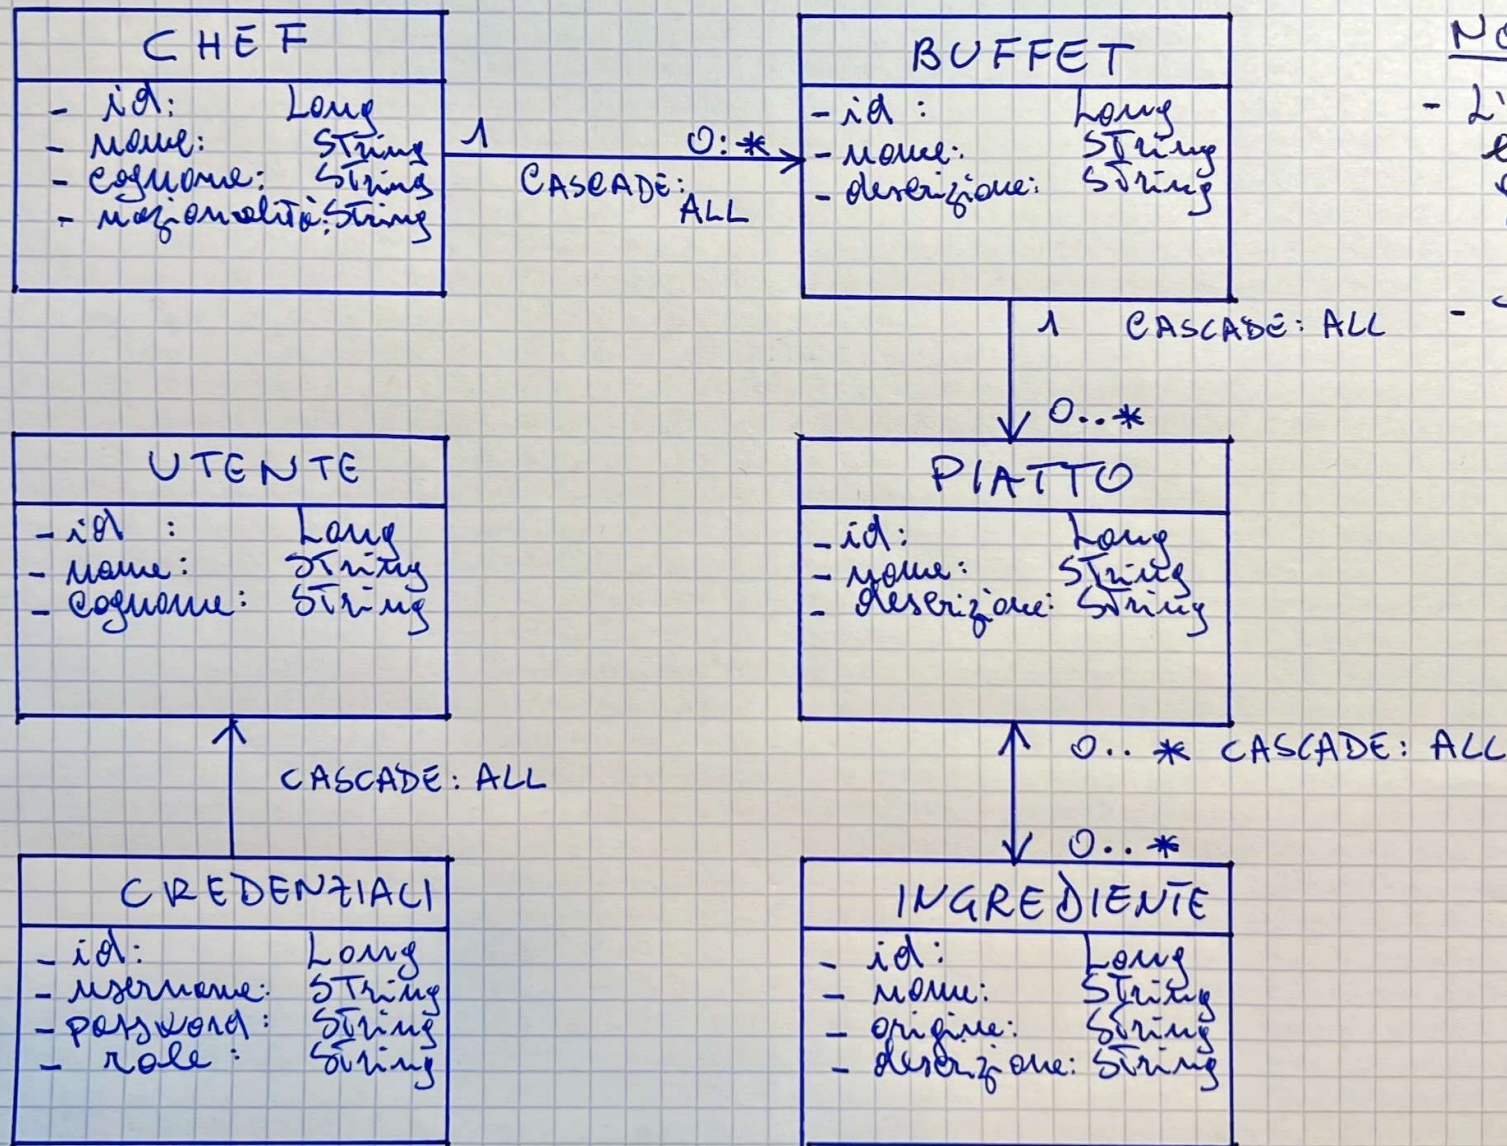 CHEF
- id: Long
- nome: String
- cognome: String
- nazionalità: String
1 0:*
CASCADE:
ALL
BUFFET
- id: Long
- nome: String
- descrizione: String
1 CASCADE: ALL
0..*
UTENTE
- id: Long
- nome: String
- cognome: String
PIATTO
- id: Long
- nome: String
- descrizione: String
CASCADE: ALL
0..* CASCADE: ALL
0..*
CREDENZIALI
- id: Long
- username: String
- password: String
- role: String
INGREDIENTE
- id: Long
- nome: String
- origine: String
- descrizione: String